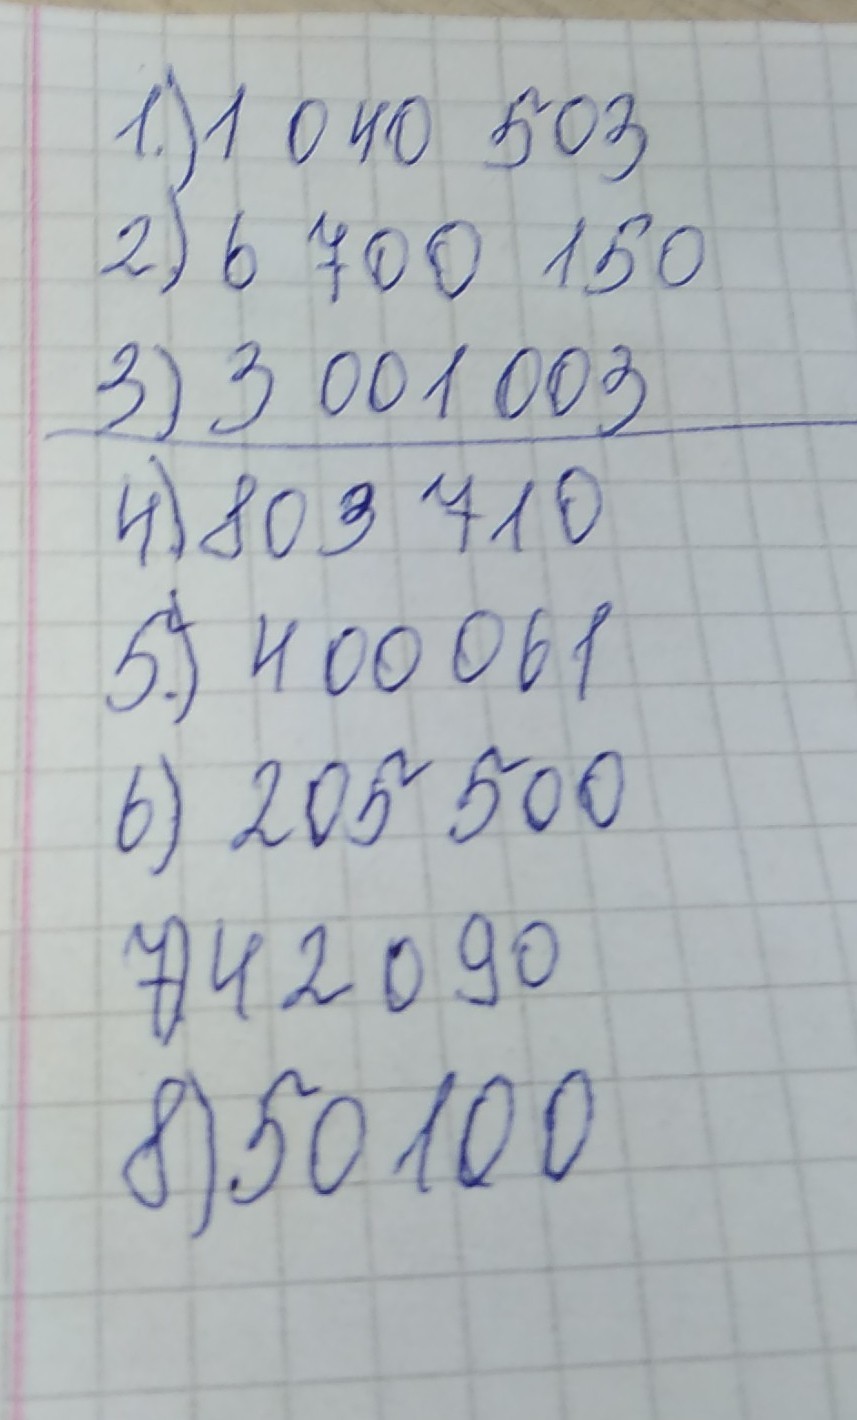 1.) 1 040 503
2) 6 700 150
3) 3 001 003
4) 803 710
5.) 400 061
6) 205 500
7) 42 090
8) 50 100